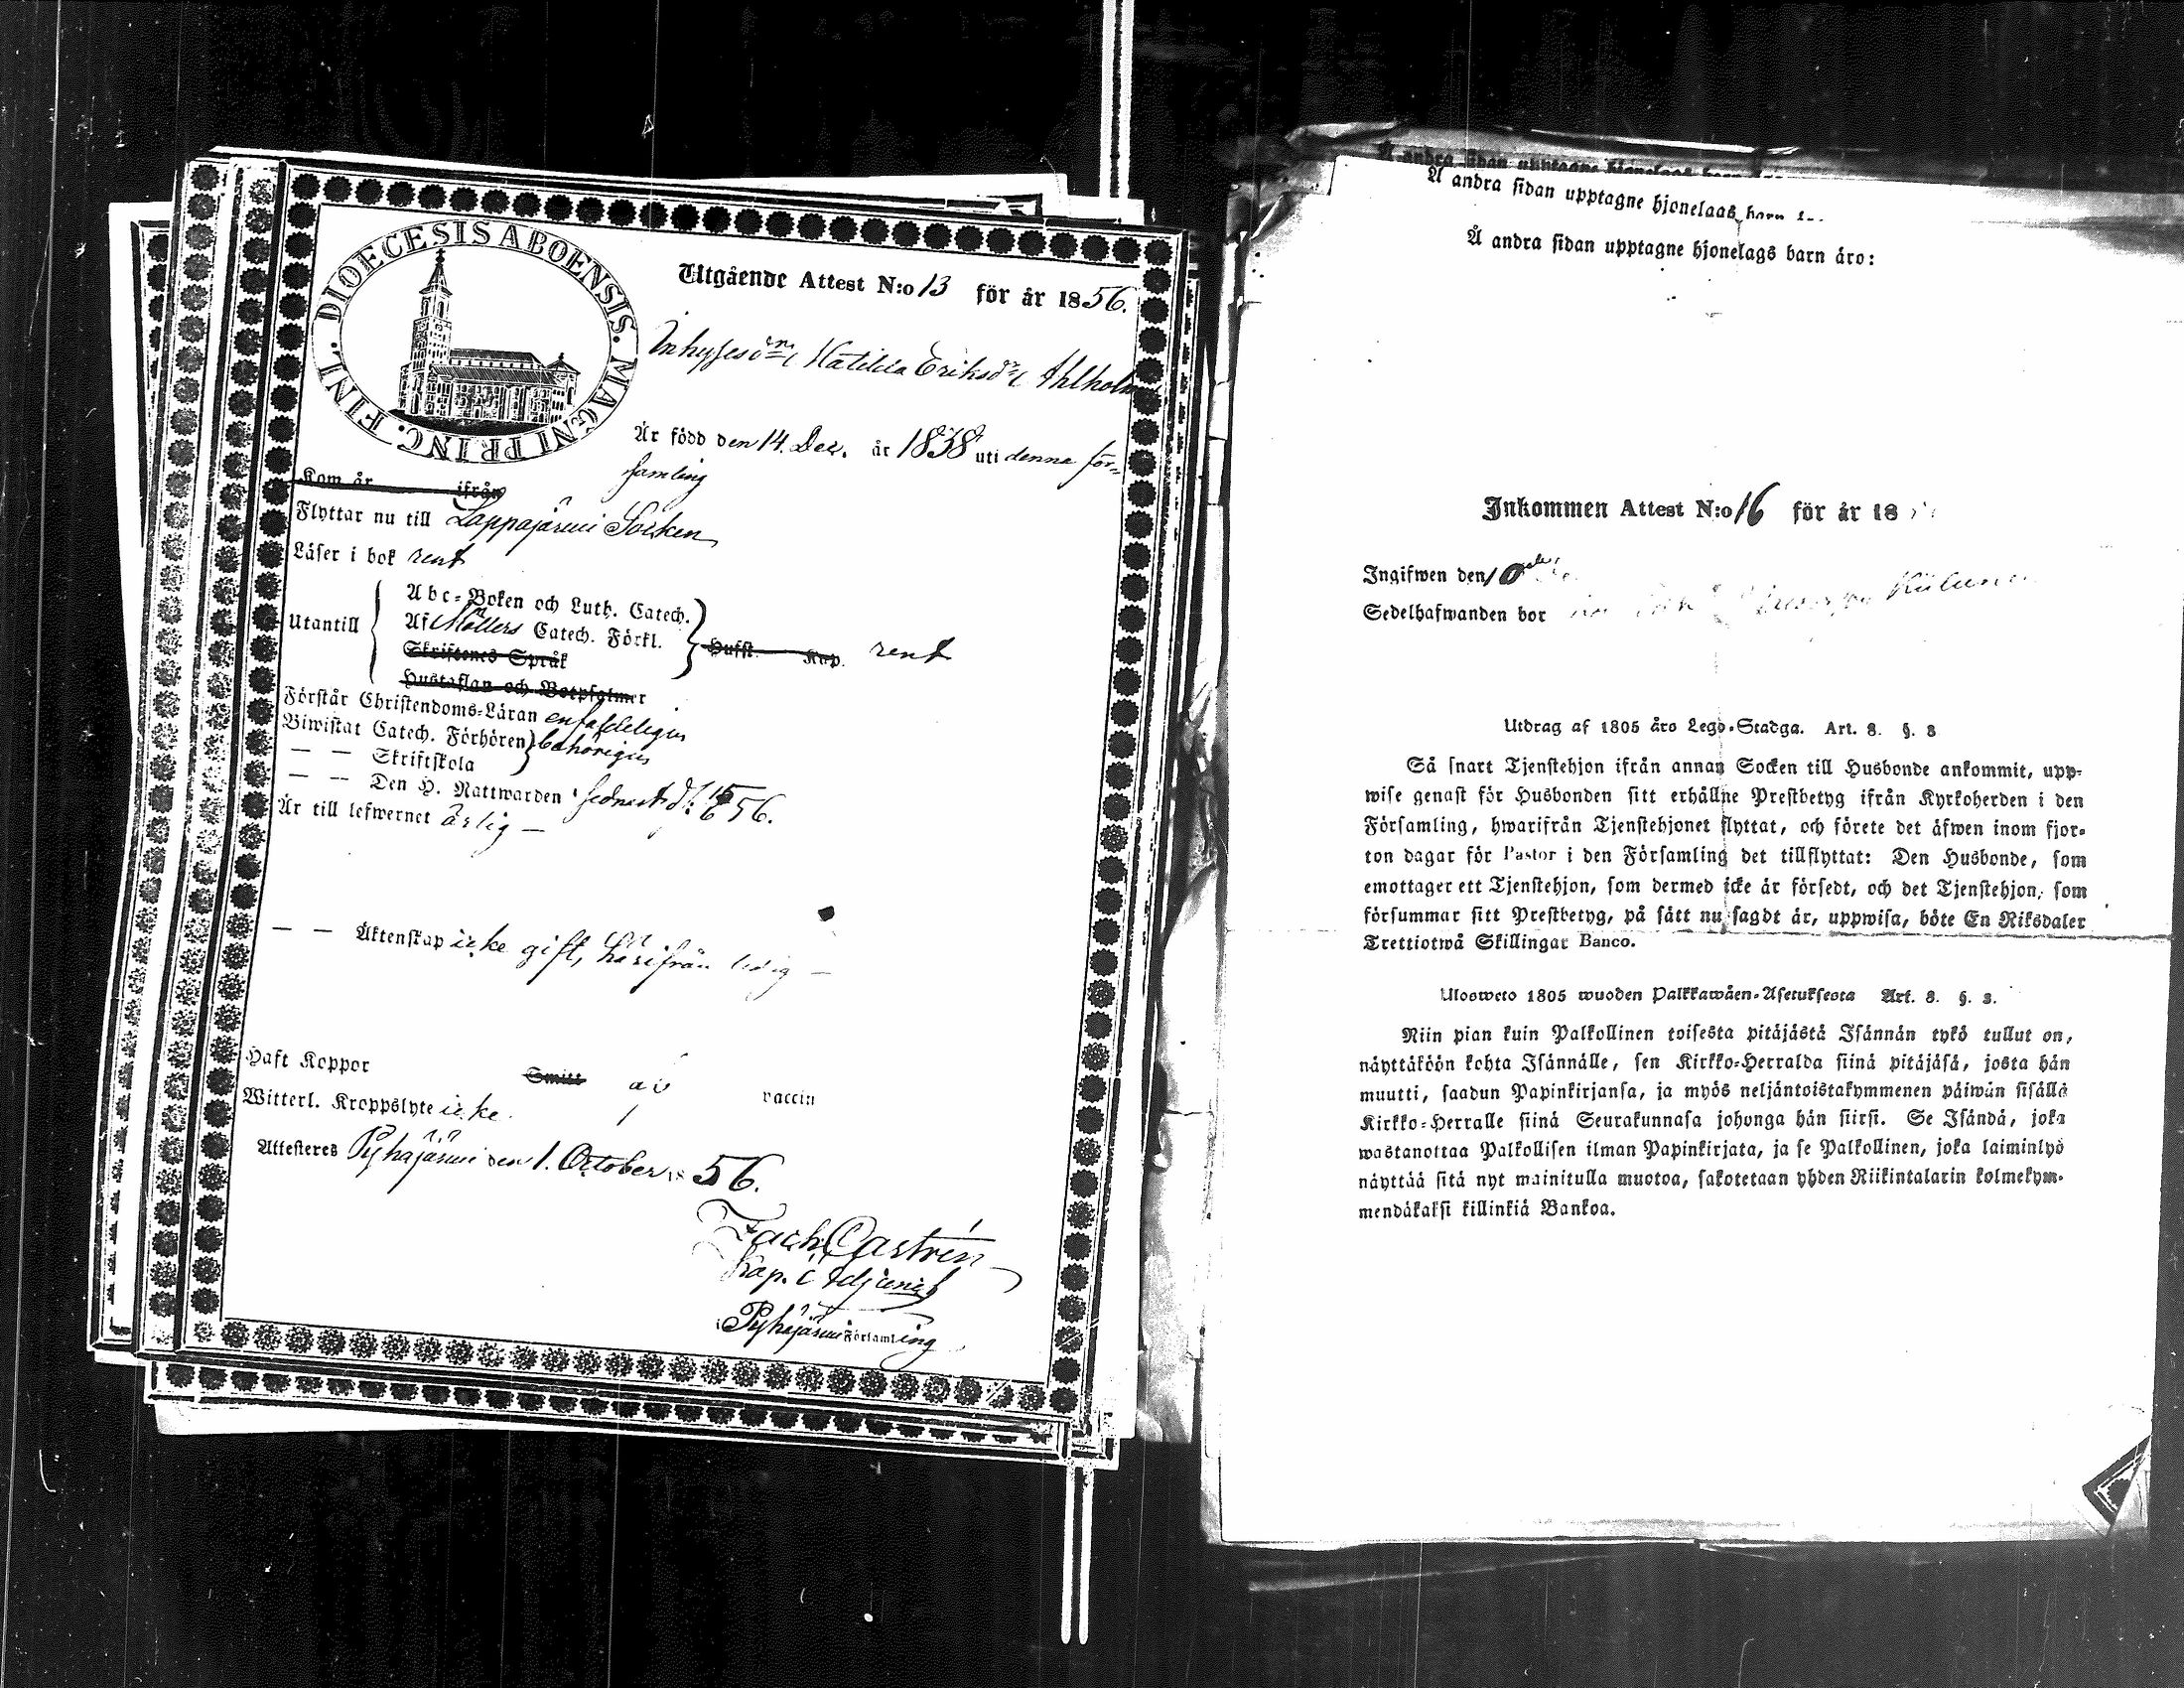 DIOECESIS ABOENSIS. MAGNI PRINC. FINL.
Utgående Attest N:o 13 för år 1856.
Inhyses dr Matilda Eriksdr Ahlholm
Är född den 14. Dec. år 1838 uti denna för-
samling
Kom år ifrån
Flyttar nu till Lappajärvi Socken
Läser i bok rent
Utantill
Abc-Boken och Luth. Catech.
Af Möllers Catech. Förkl.
Skriftenes Språk
Hustaflan och Botpsalmer
Hufst. Kap. rent
Förstår Christendoms-Läran enfaldeligen
Biwistat Catech. Förhören behörigen
— — Skriftskola
— — Den H. Nattwarden sednast d. 56.
Är till lefwernet ärlig —
— — Äktenskap icke gift, härifrån ledig —
Haft Koppor Smitt af vaccin
Witterl. Kroppslyte icke.
Attesteres Pyhäjärvi den 1. October 1856.
Zach. Castrén
Kap. o Adjunct
i Pyhäjärvi Församling
Å andra sidan upptagne hjonelags barn
Å andra sidan upptagne hjonelags barn
Å andra sidan upptagne hjonelags barn äro:
Inkommen Attest N:o 16 för år 18
Ingifwen den
Sedelhafwanden bor
Utdrag af 1805 års Lego-Stadga. Art. 8. §. 3
Så snart Tjenstehjon ifrån annan Socken till Husbonde ankommit, upp-
wise genast för Husbonden sitt erhållne Prestbetyg ifrån Kyrkoherden i den
Församling, hwarifrån Tjenstehjonet flyttat, och förete det äfwen inom fjor-
ton dagar för Pastor i den Församling det tillflyttat: Den Husbonde, som
emottager ett Tjenstehjon, som dermed icke är försedt, och det Tjenstehjon, som
försummar sitt Prestbetyg, på sätt nu sagdt är, uppwisa, böte En Riksdaler
Trettiotwå Skillingar Banco.
Ulosweto 1805 wuoden Palkkawäen-Asetuksesta Art. 8. §. 3.
Niin pian kuin Palkollinen toisesta pitäjästä Isännän tykö tullut on,
näyttäköön kohta Isännälle, sen Kirkko-Herralda siinä pitäjäsä, josta hän
muutti, saadun Papinkirjansa, ja myös neljäntoistakymmenen päiwän sisällä
Kirkko-Herralle siinä Seurakunnasa johonga hän siirsi. Se Isändä, joka
wastanottaa Palkollisen ilman Papinkirjata, ja se Palkollinen, joka laiminlyö
näyttää sitä nyt mainitulla muotoa, sakotetaan yhden Riikintalarin kolmekym-
mendäkaksi killinkiä Bankoa.